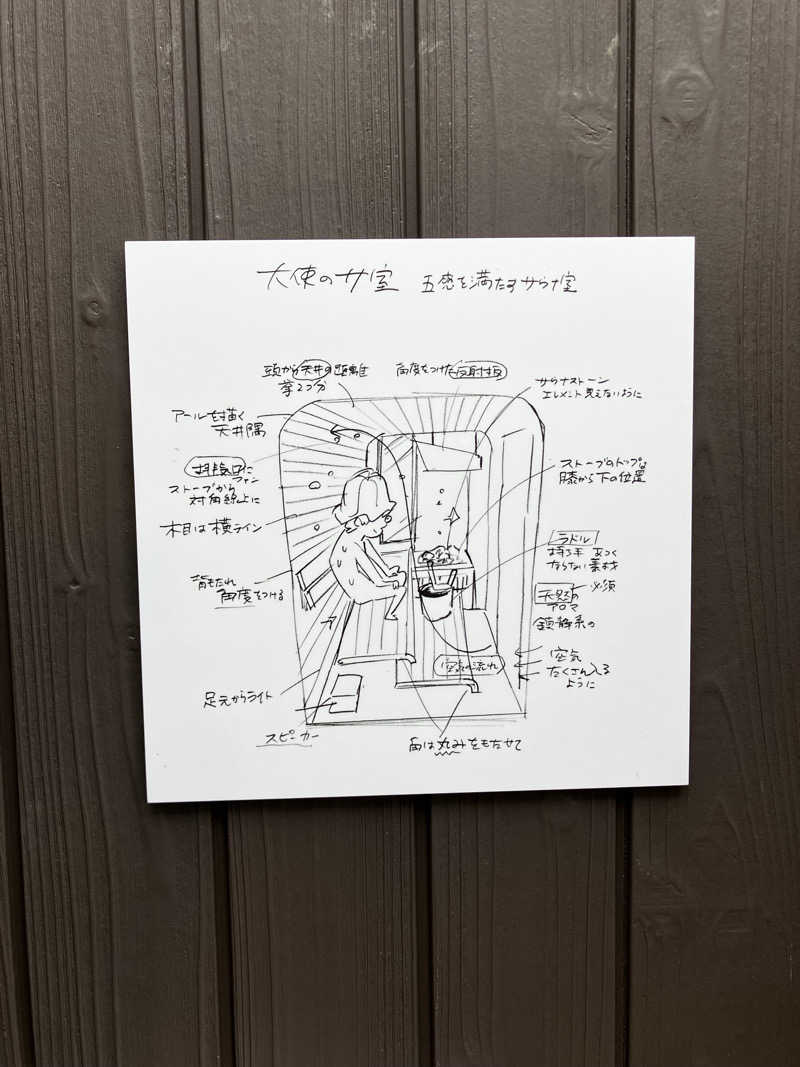 大使のサ室 五感を満たすサウナ室
頭から天井の距離
拳2つ分
角度をつけた反射板
サウナストーン
エレメント見えないように
アールを描く
天井隅
排気口に
ファン
ストーブから
対角線上に
ストーブのトップは
膝から下の位置
木目は横ライン
ラドル
持つ手 あつく
ならない素材
背もたれ
角度をつける
天然の 必須
アロマ
鎮静系の
空気の流れ
空気
たくさん入る
ように
足元からライト
スピーカー
角は丸みをもたせて